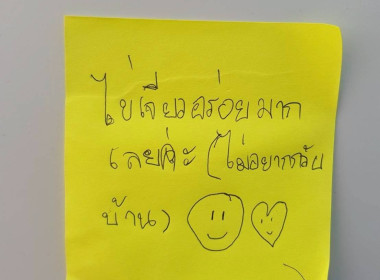 ไข่เจียวอร่อยมาก
เลยค่ะ (ไม่อยากกลับ
บ้าน)